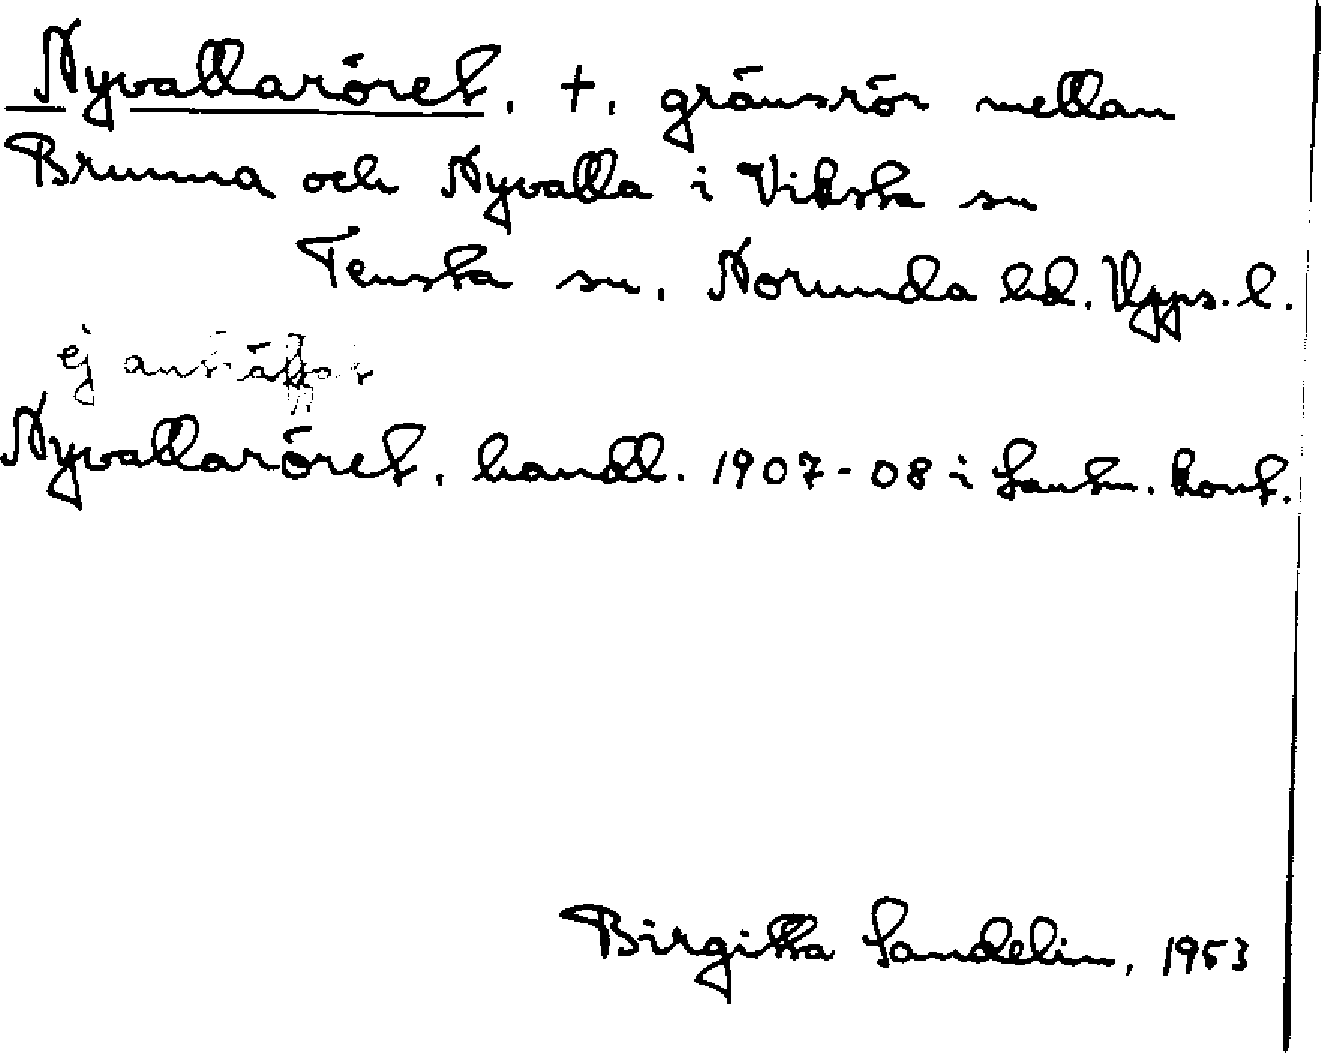 Nyvallaröret. +. gränsrör mellan
Brunna och Nyvalla i Viksta sn
Tensta sn. Norunda hd. Upps. l.
ej anträffat
Nyvallaröret. handl. 1907-08 i Lantm. kont.
Birgitta Sandelin, 1953